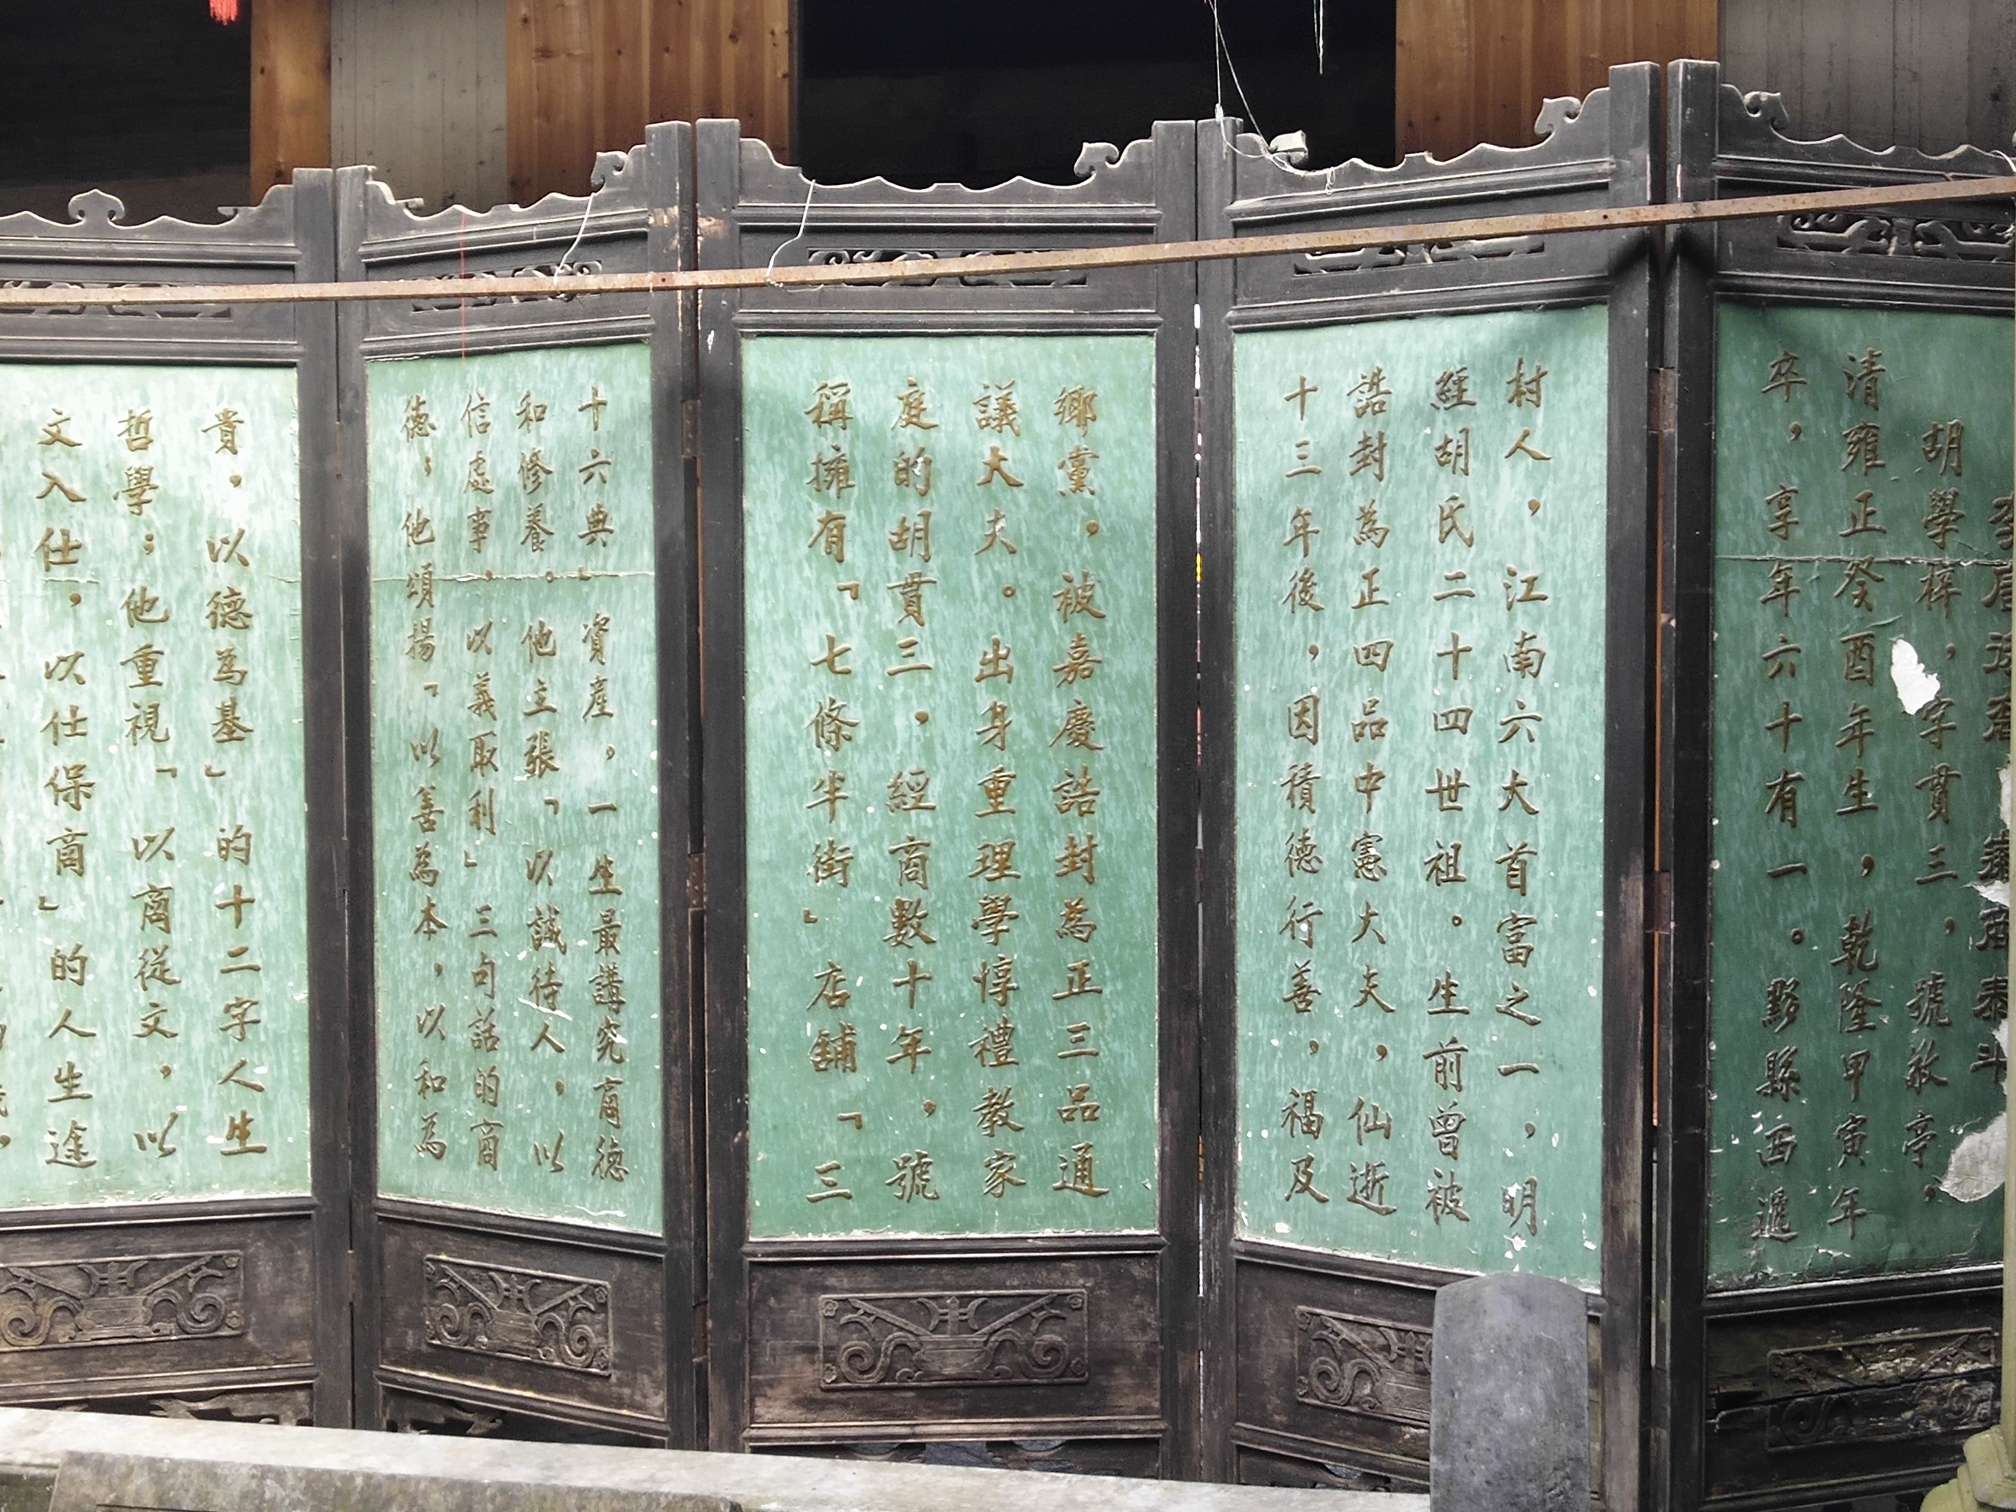 徽商泰斗
胡學梓，字貫三，號敬亭，
清雍正癸酉年生，乾隆甲寅年
卒，享年六十有一。黟縣西遞
村人，江南六大首富之一，明
經胡氏二十四世祖。生前曾被
誥封為正四品中憲大夫，仙逝
十三年後，因積德行善，福及
鄉黨，被嘉慶誥封為正三品通
議大夫。出身重理學惇禮教家
庭的胡貫三，經商數十年，號
稱擁有「七條半街」店舖「三
十六典」資產，一生最講究商德
和修養。他主張「以誠待人，以
信處事，以義取利」三句話的商
德；他頌揚「以善為本，以和為
貴，以德為基」的十二字人生
哲學；他重視「以商從文，以
文入仕，以仕保商」的人生途